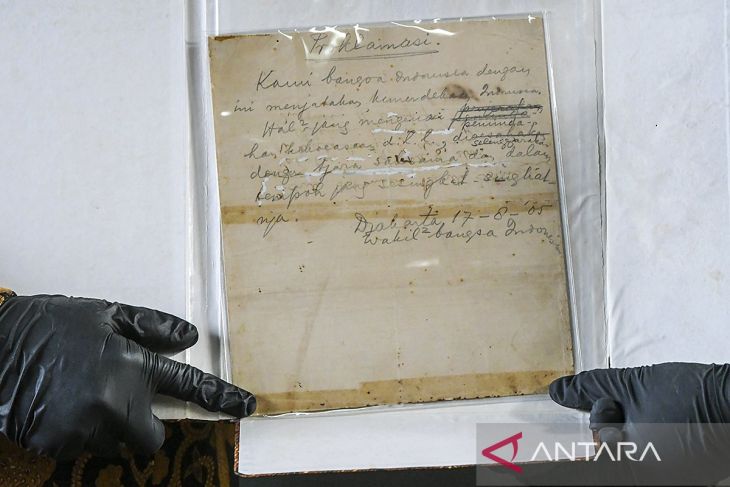 Proklamasi.
Kami bangsa Indonesia dengan
ini menjatakan kemerdekaan Indonesia.
Hal² jang mengenai peminda-
han kekoeasaan d.l.l., dioesahakan
selenggarakan
dengan tjara saksama dan dalam
tempoh jang sesingkat-singkat-
nja.
Djakarta, 17-8-'05
Wakil² bangsa Indonesia
ANTARA